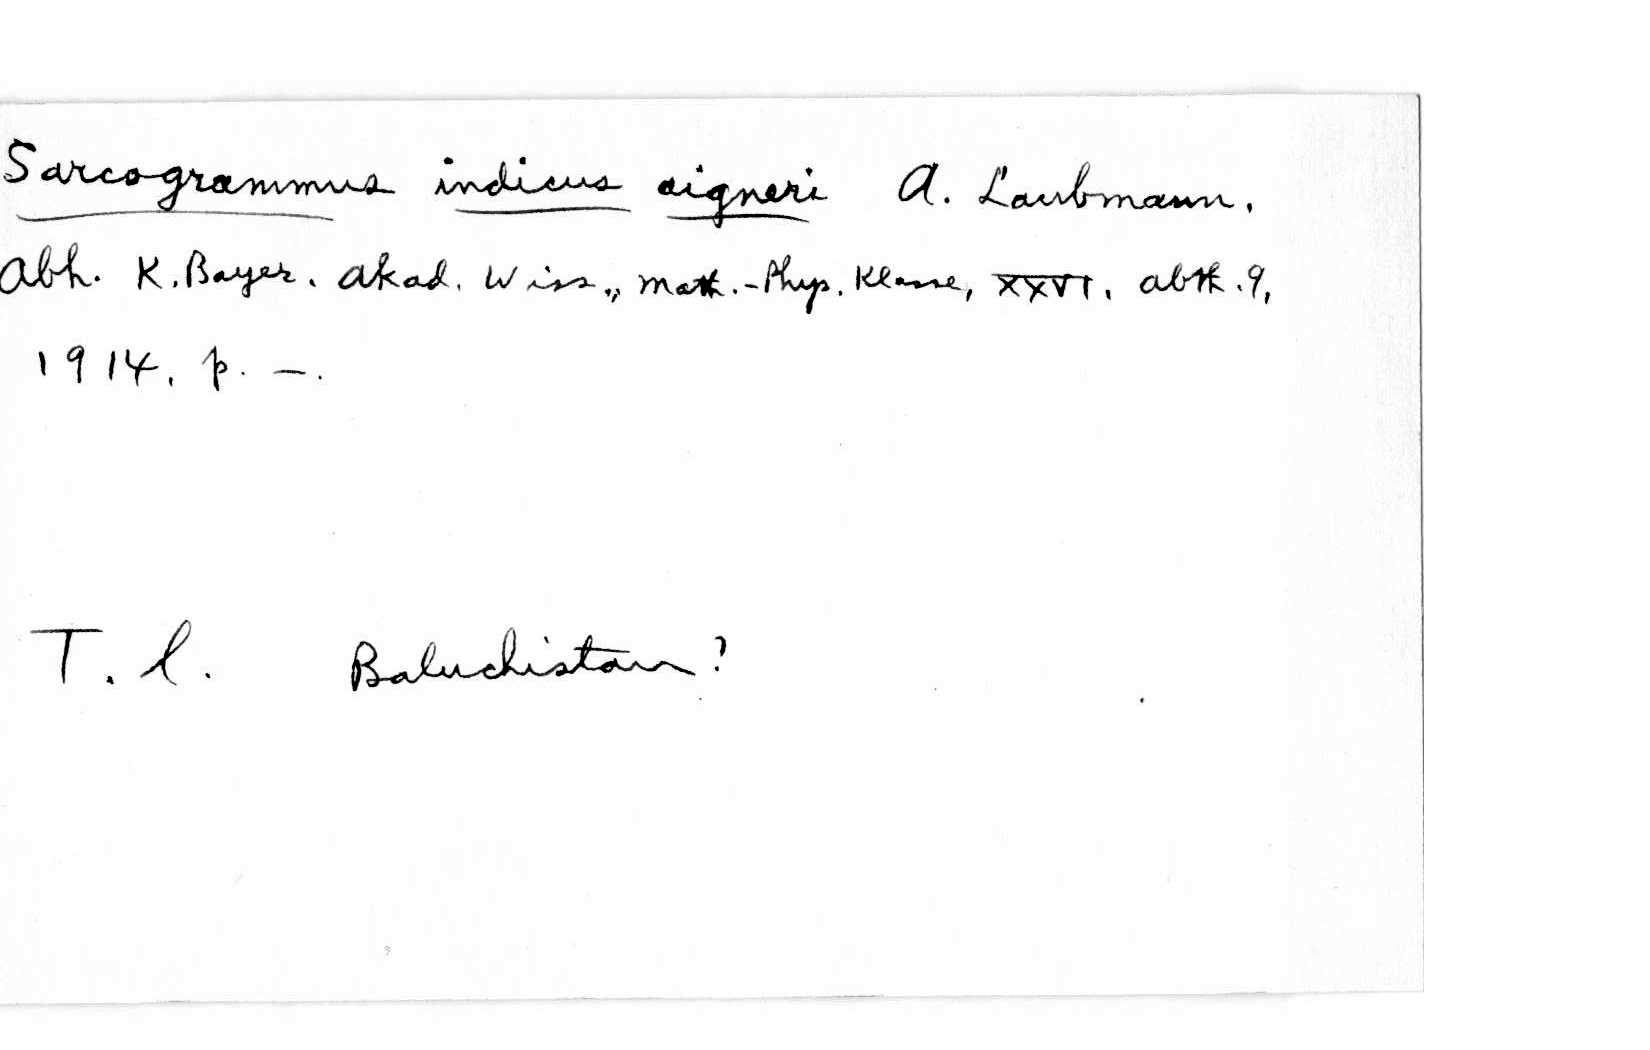 Sarcogrammus indicus aigneri A. Laubmann.
Abh. K. Bayer. Akad. Wiss., Math.-Phys. Klasse, XXVI, abth. 9,
1914, p. —.
T. l. Baluchistan?